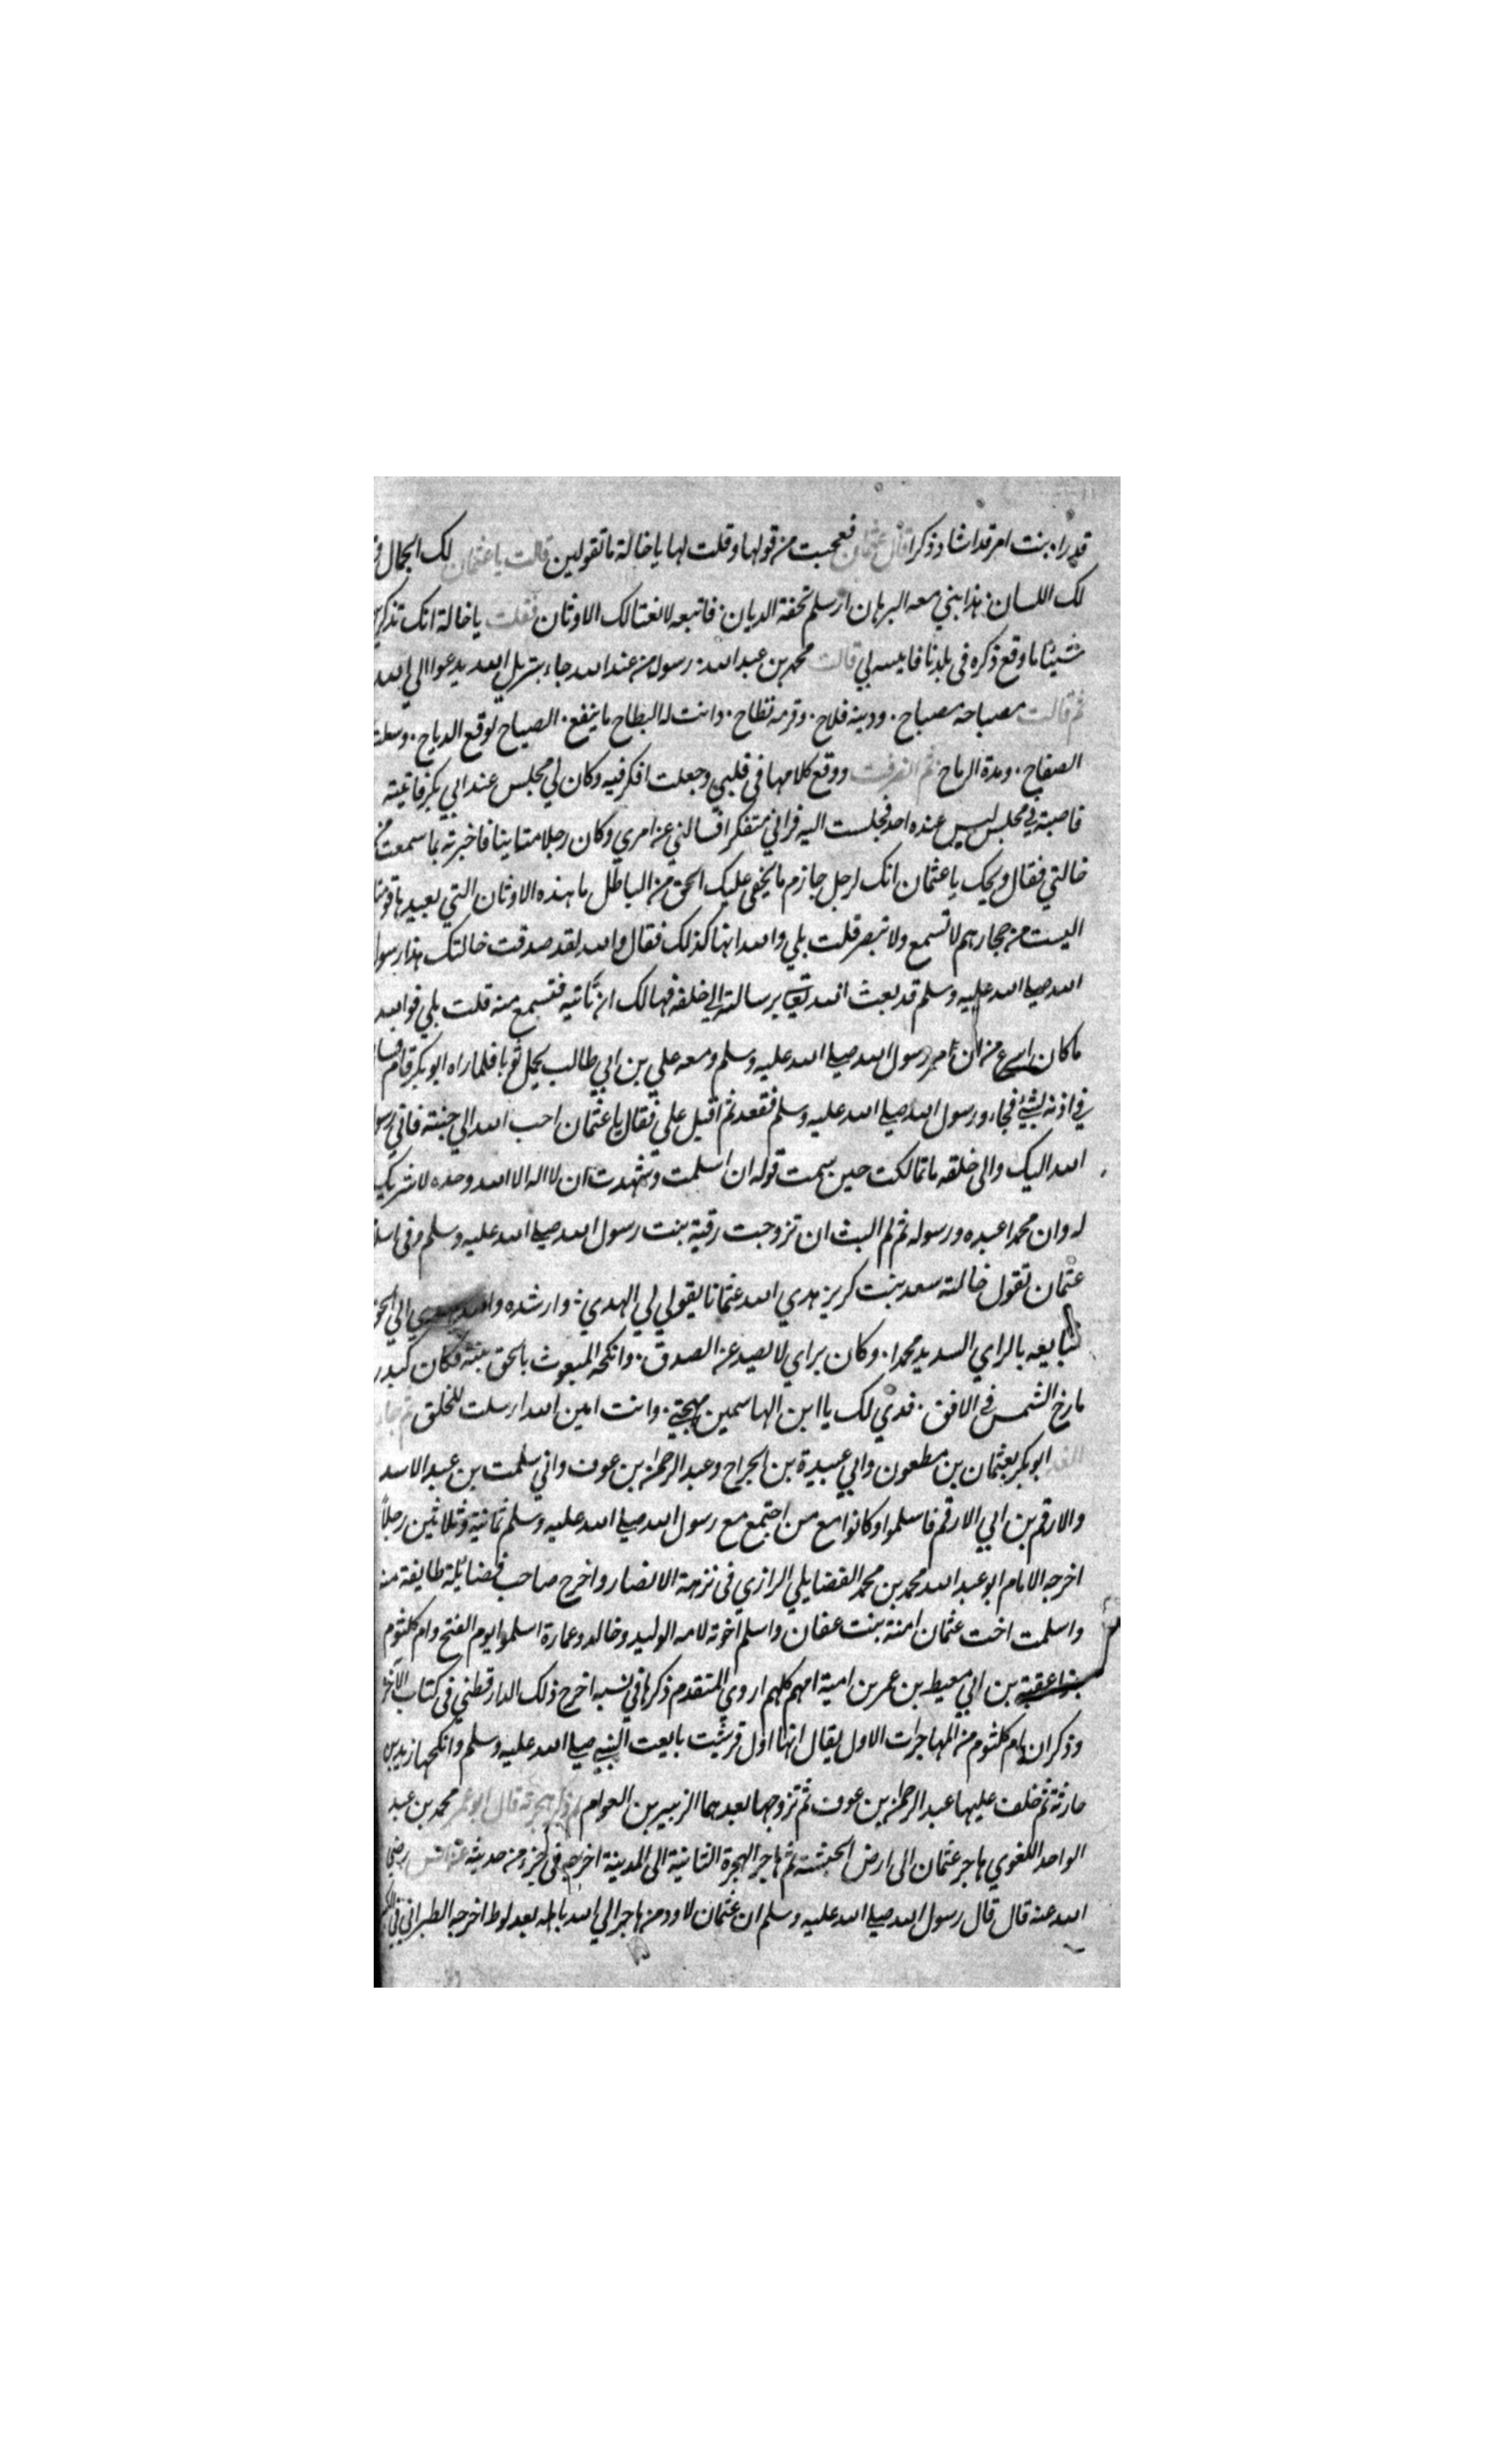 قدراه بنت امر قد اشاد ذكرا قال عثمان فعجبت من قولها وقلت لها يا خالة ما تقولين قالت يا عثمان لك الجمال و
لك اللسان هذا نبي معه البرهان ارسله تحفة الديان فاتبعه لا تغتالك الاوثان فقلت يا خالة انك تذكرين
شيئا ما وقع ذكره في بلدنا فابينيه لي قالت محمد بن عبد الله رسول من عند الله جاء بتنزيل الله يدعوا الى الله
ثم قالت مصباحه مصباح ودينه فلاح وقرنه نطاح ذانت له البطاح ما ينفع الصياح لو وقع الذباح وسلت
الصفاح ومدة الرماح ثم انصرفت ووقع كلامها في قلبي وجعلت افكر فيه وكان لي مجلس عند ابي بكر فاتيته
فاصبته في مجلس ليس عنده احد فجلست اليه فراني متفكرا فسالني عن امري وكان رجلا متانيا فاخبرته بما سمعت من
خالتي فقال ويحك يا عثمان انك لرجل جازم ما يخفى عليك الحق من الباطل ما هذه الاوثان التي يعبدها قومنا
اليست من حجارهم لا تسمع ولا تبصر قلت بلي والله انها كذلك فقال والله لقد صدقت خالتك هذا رسول
الله صلى الله عليه وسلم قد بعث الله تعالى برسالته الى خلقه فهالك ان تاتيه فتسمع منه قلت بلي فوالله
ما كان اسرع من ان مر رسول الله صلى الله عليه وسلم ومعه علي بن ابي طالب يحمل ثوبا فلما راه ابو بكر قام
في اذنه بشيئ فجاء ورسول الله صلى الله عليه وسلم فقعد ثم اقبل علي فقال يا عثمان احب الله الى جنته فاني رسول
الله اليك والى خلقه ما تمالكت حين سمعت قوله ان اسلمت وشهدت ان لا اله الا الله وحده لا شريك
له وان محمدا عبده ورسوله ثم لم البث ان تزوجت رقية بنت رسول الله صلى الله عليه وسلم وفي اسلام
عثمان تقول خالته سعد بنت كريز هدي الله عثمانا بقولي لي الهدي وارشده والله يهدي الى الحق
فتابعه بالراي السديد محمدا وكان براي لا يصد عن الصدق وانكحه المبعوث بالحق بنته فكان كبدر
مازج الشمس في الافق فدي لك يا ابن الهاشمين مهجتي وانت امين الله ارسلت للخلق ثم جاء
الغد ابو بكر بعثمان بن مطعون وابي عبيدة بن الجراح وعبد الرحمن بن عوف واني سلمت بن عبد الاسد
والارقم بن ابي الارقم فاسلموا وكانوا مع من اجتمع مع رسول الله صلى الله عليه وسلم ثمانية وثلاثين رجلاً
اخرجه الامام ابو عبد الله محمد بن محمد الفضايلي الرازي في نزهة الانصار واخرج صاحب فضايله طايفة منه
واسلمت اخت عثمان امنة بنت عفان واسلم اخوته لامه الوليد وخالد وعمارة اسلموا يوم الفتح وام كلثوم
بنوا عقبة بن ابي معيط بن عمر بن امية امهم كلهم اروي المتقدم ذكرها في نسبه اخرج ذلك الدارقطني في كتاب الاخوة
وذكر ان ام كلثوم من المهاجرات الاول يقال انها اول قرشية بايعت النبي صلى الله عليه وسلم وانكحها زيد بن
حارثة ثم خلف عليها عبد الرحمن بن عوف ثم تزوجها بعدهما الزبير بن العوام ذكر هجرته قال ابو عمر محمد بن عبد
الواحد اللغوي هاجر عثمان الى ارض الحبشة ثم هاجر الهجرة الثانية الى المدينة اخرجه في جزء من حديثه عن انس رضي
الله عنه قال قال رسول الله صلى الله عليه وسلم ان عثمان لاود من هاجر الى الله باهله بعد لوط اخرجه الطبراني في